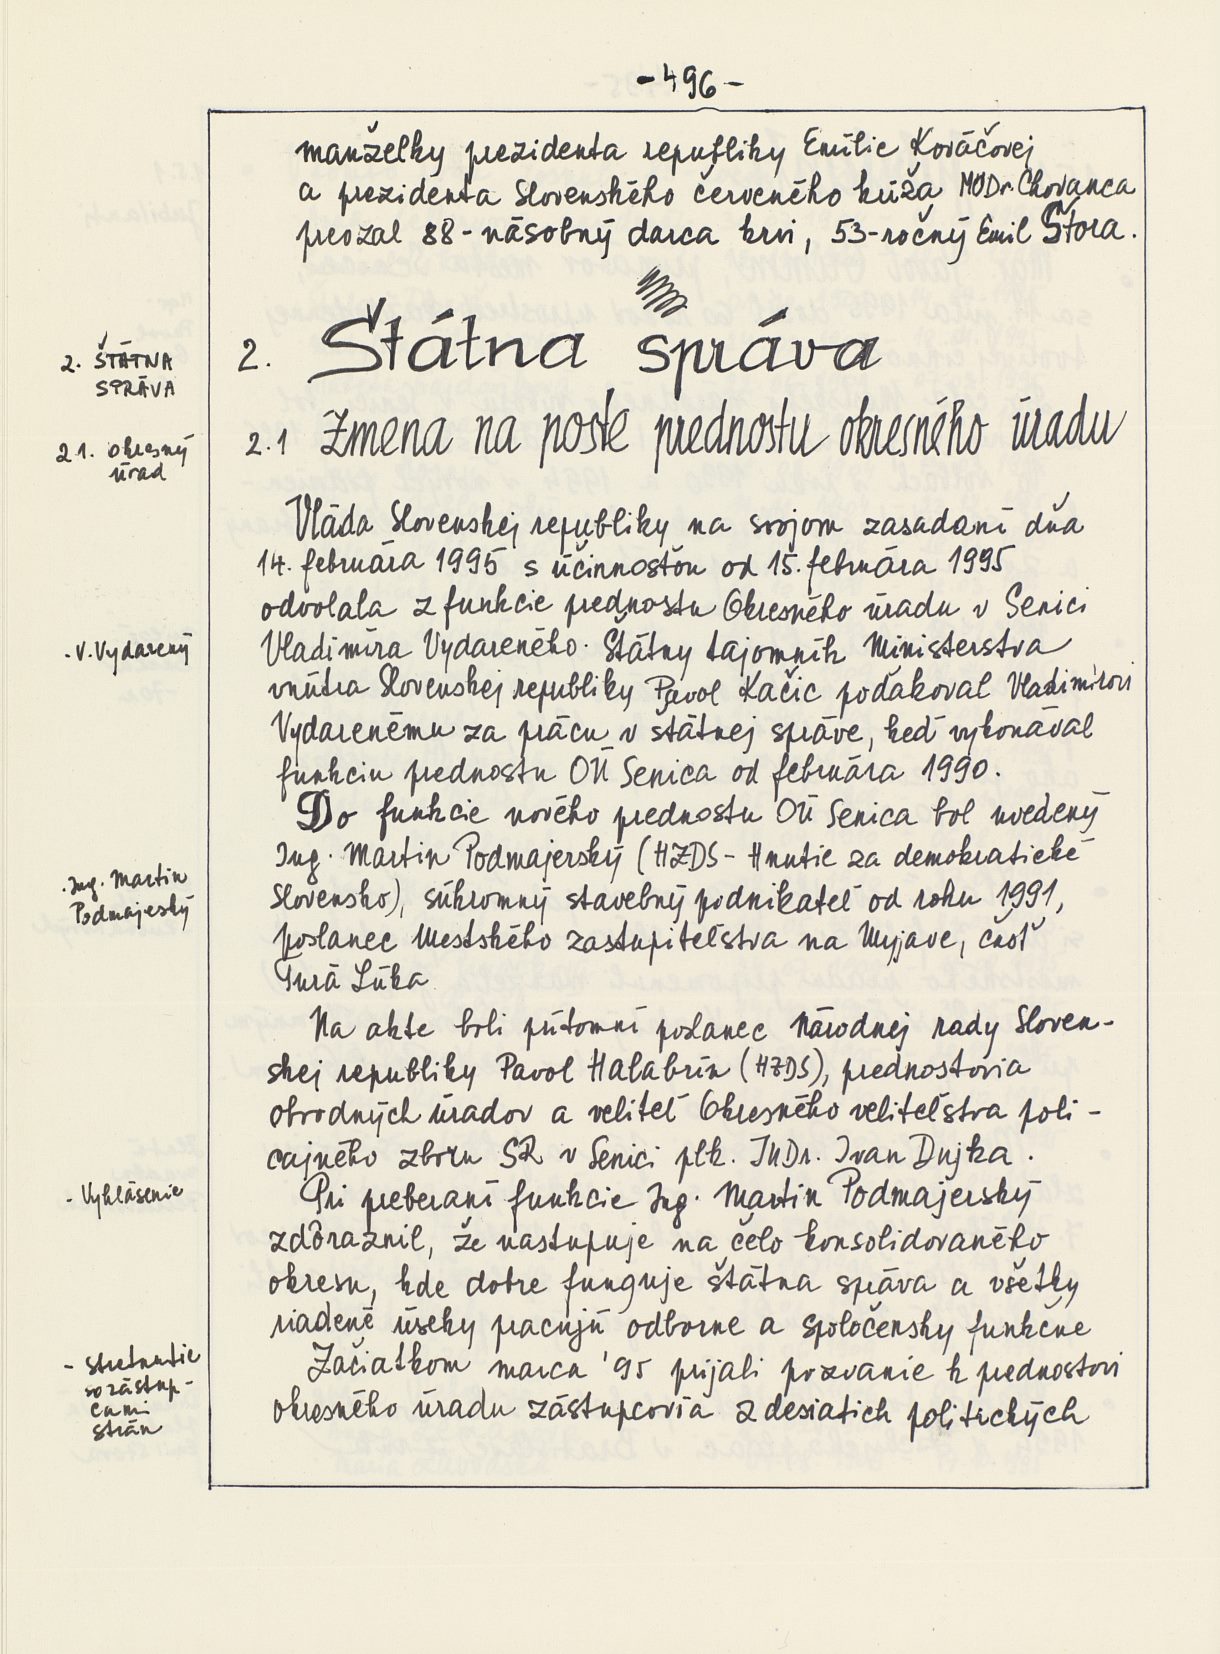 -496-
manželky prezidenta republiky Emílie Kováčovej
a prezidenta Slovenského červeného kríža MUDr. Chovanca
prevzal 88-násobný darca krvi, 53-ročný Emil Štora.
2. ŠTÁTNA
SPRÁVA
2. Štátna správa
2.1. Okresný
úrad
2.1 Zmena na poste prednostu okresného úradu
Vláda Slovenskej republiky na svojom zasadaní dňa
14. februára 1995 s účinnosťou od 15. februára 1995
odvolala z funkcie prednostu Okresného úradu v Senici
- V. Vydarený
Vladimíra Vydareného. Štátny tajomník Ministerstva
vnútra Slovenskej republiky Pavol Kačic poďakoval Vladimírovi
Vydarenému za prácu v štátnej správe, keď vykonával
funkciu prednostu OÚ Senica od februára 1990.
Do funkcie nového prednostu OÚ Senica bol uvedený
Ing. Martin Podmajerský (HZDS - Hnutie za demokratické
- Ing. Martin
Podmajeský
Slovensko), súkromný stavebný podnikateľ od roku 1991,
poslanec Mestského zastupiteľstva na Myjave, časť
Turá Lúka
Na akte boli prítomní poslanec Národnej rady Sloven-
skej republiky Pavol Halabrín (HZDS), prednostovia
obvodných úradov a veliteľ Okresného veliteľstva poli-
cajného zboru SR v Senici plk. JUDr. Ivan Dujka.
- Vyhlásenie
Pri preberaní funkcie Ing. Martin Podmajerský
zdôraznil, že nastupuje na čelo konsolidovaného
okresu, kde dobre funguje štátna správa a všetky
riadené úseky pracujú odborne a spoločensky funkčne
- Stretnutie
so zástup-
cami
strán
Začiatkom marca '95 prijali pozvanie k prednostovi
okresného úradu zástupcovia z desiatich politických